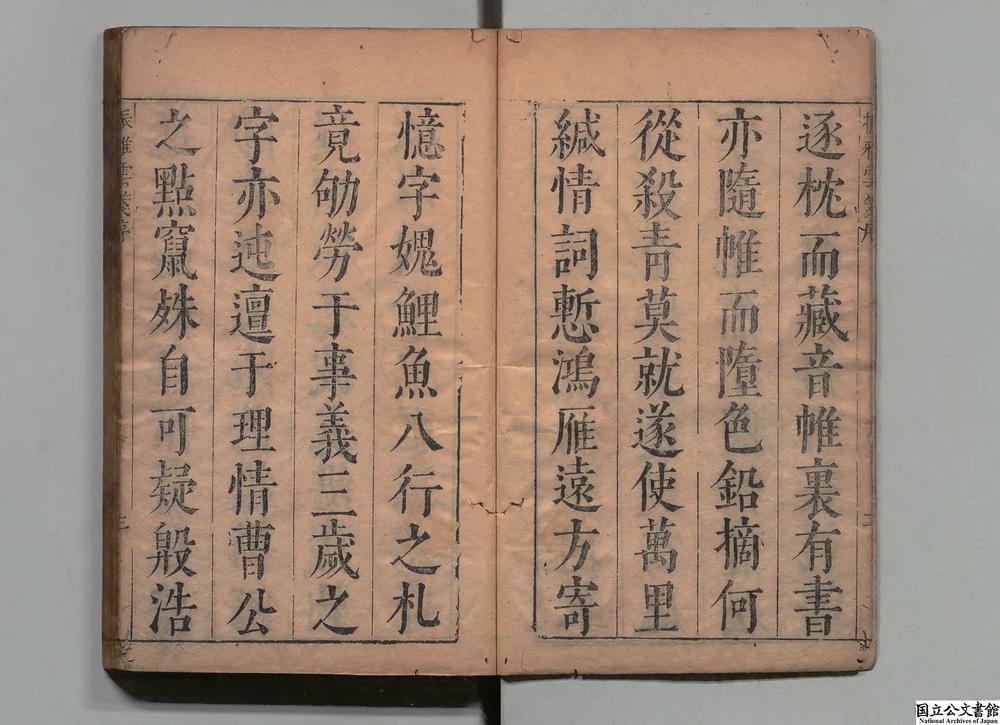 逐枕而藏音帷裏有書
亦隨帷而墮色鉛摘何
從殺青莫就遂使萬里
緘情詞慙鴻雁遠方寄
憶字媿鯉魚八行之札
竟劬勞于事義三歲之
字亦迍邅于理情曹公
之點竄殊自可疑殷浩
三
国立公文書館
National Archives of Japan